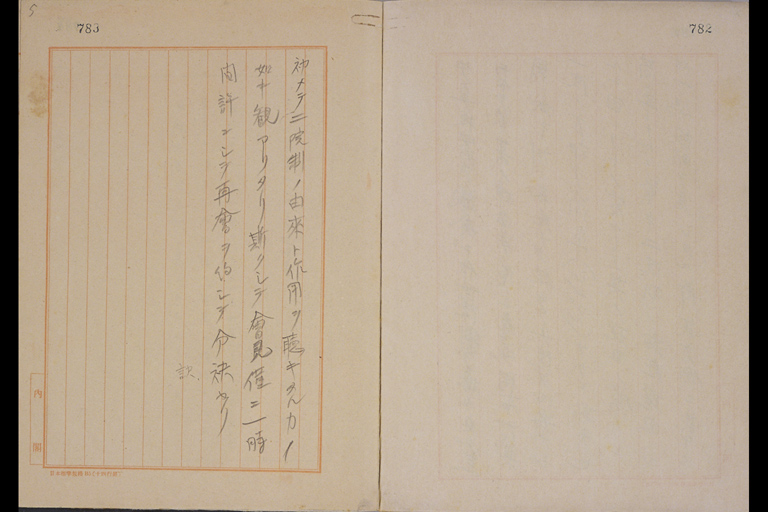 782
783
初メテ二院制ノ由來ト作用ヲ聴キタルカノ
如キ観アリタリ斯クシテ會見僅ニ一時
間許ニシテ再會ヲ約シテ分袂セリ
内閣